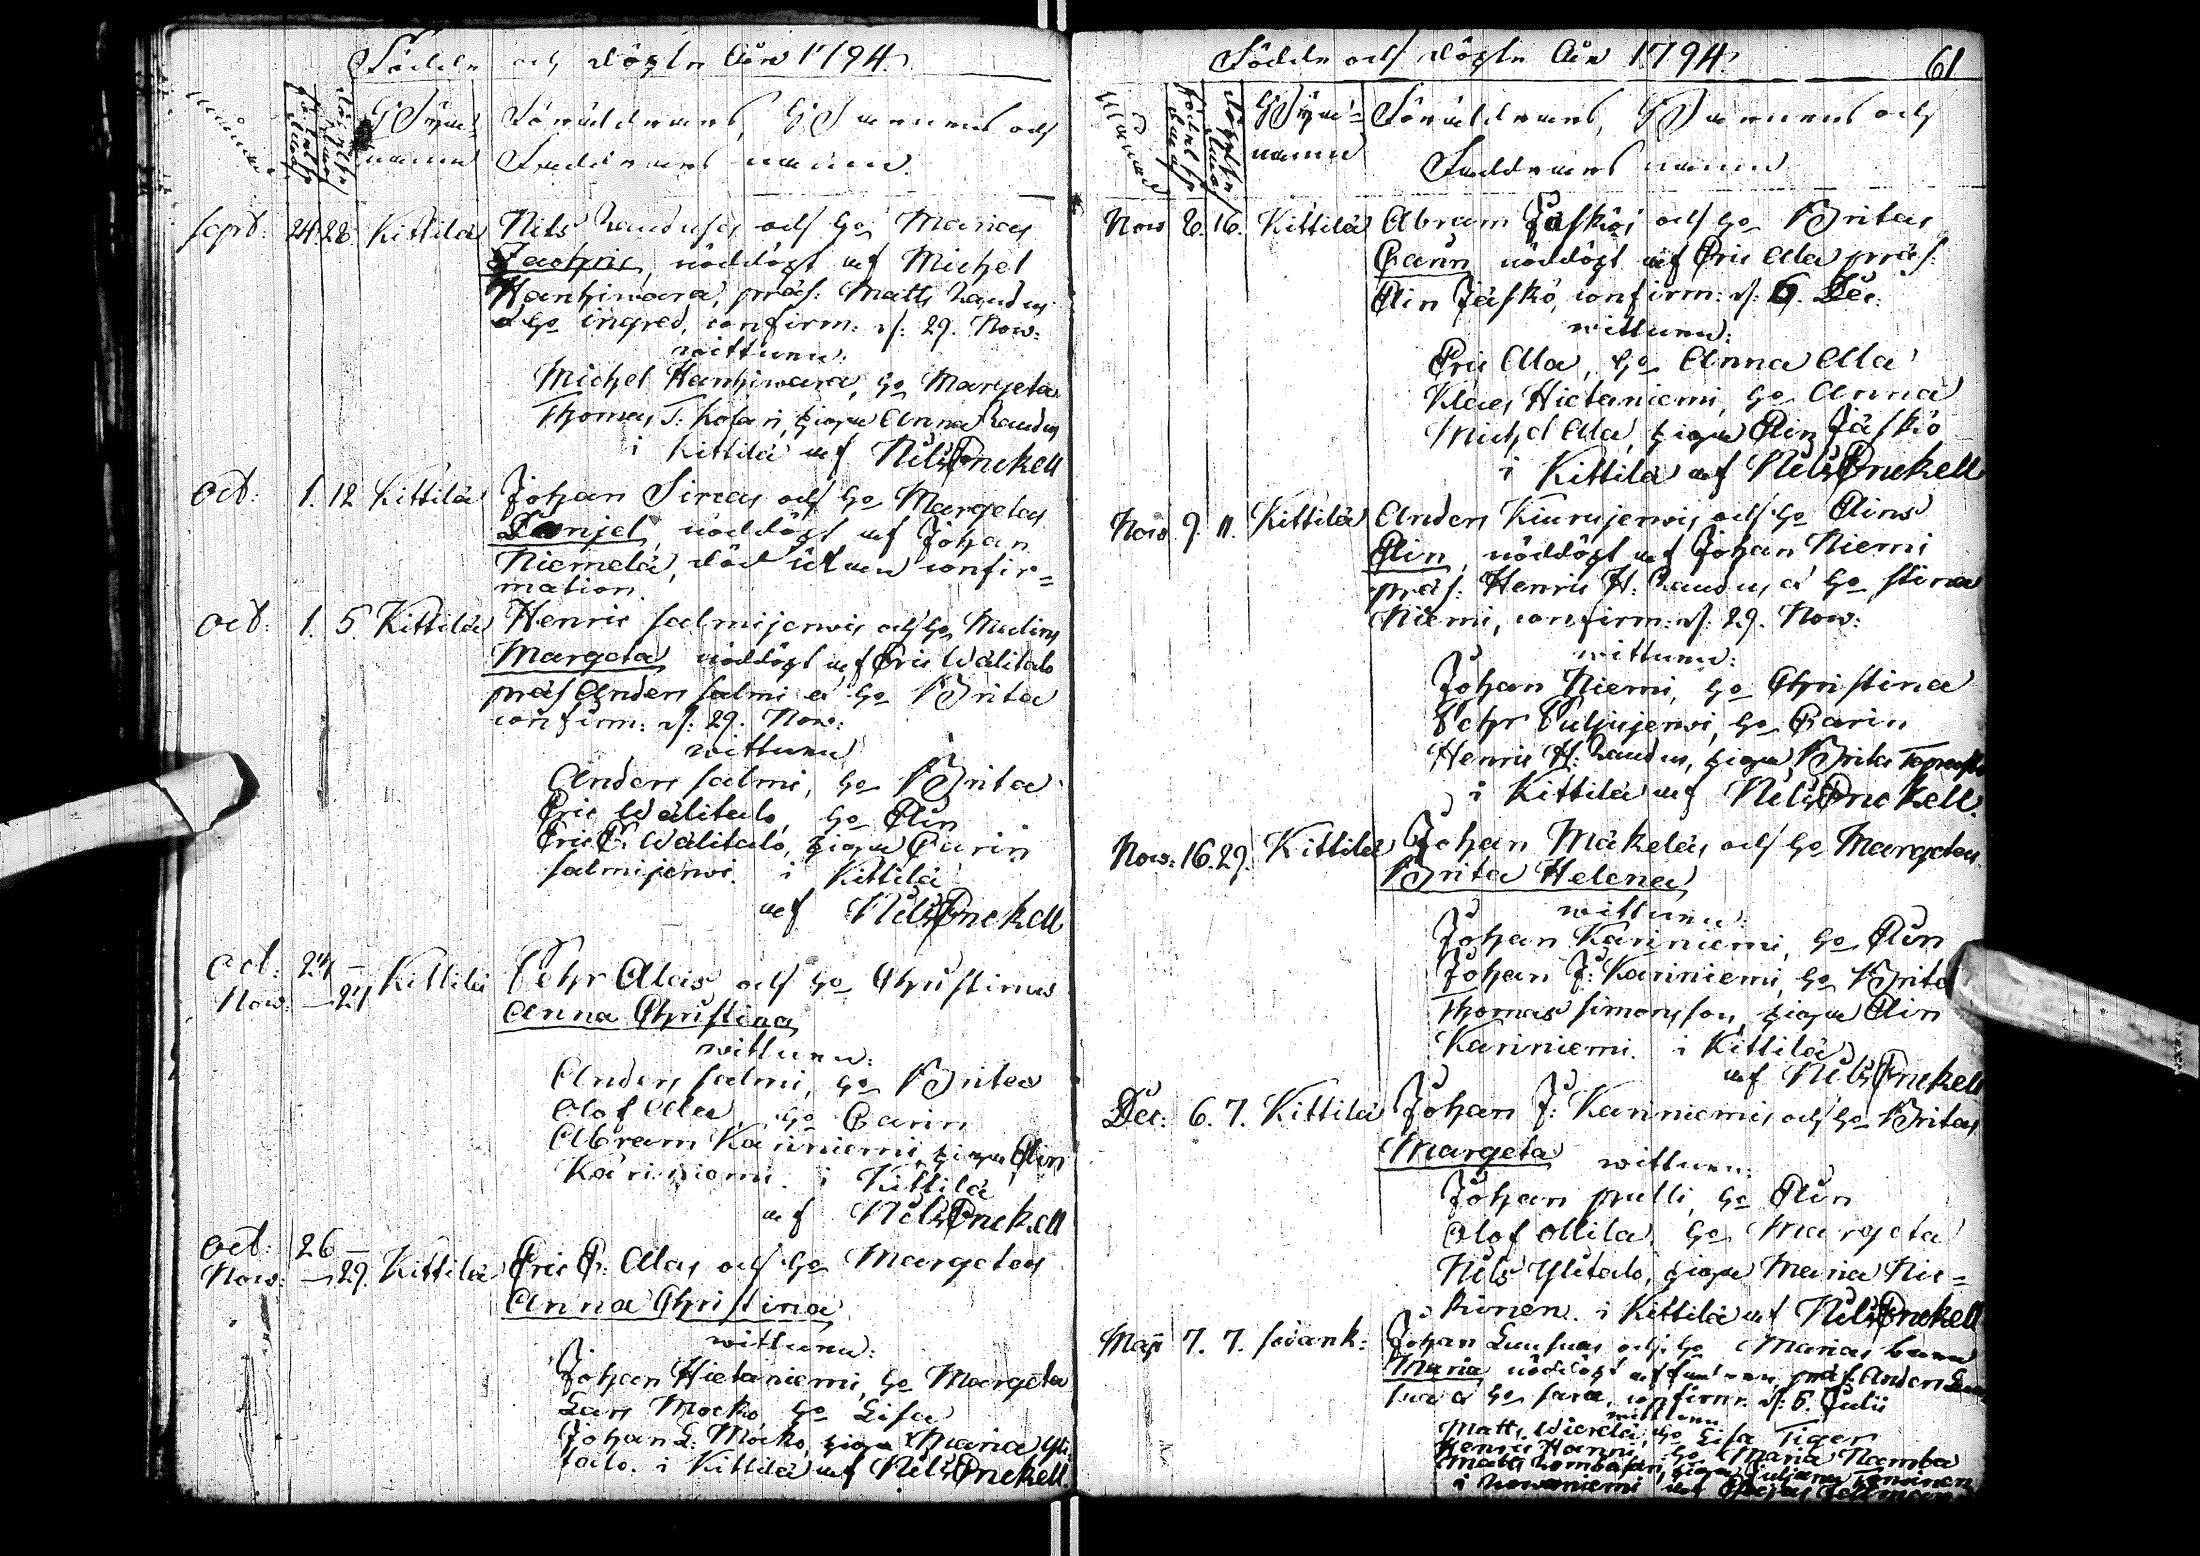 Födde och döpte Åhr 1794.
Månad
födelse dag
döpelse dag
Byns namn
Föräldrarnes, Barnens och
Faddrarnes namn.
Sept: 24. 28. Kittilä Nils Laudus's och ho Marias
Zachris, nöddöpt af Michel
Hanhiwara, præs: Matts Laudus
a ho ingred, confirm: d: 29. Now:
wittnen:
Michel Hanhiwara, ho Margeta
Thomas T: Kotari, pigan Anna Laudus
i Kittilä af Nils Enckell
Oct: 1. 12 Kittilä Johan Siras och ho Margetas
Danjel, nöddöpt af Johan
Niemelä, död utan confir=
mation.
Oct: 1. 5. Kittilä Henric Salmijerwis och ho Malins
Margeta nöddöpt af Eric Wälitalo
præs Anders Salmi a ho Brita
confirm: d: 29. Now:
wittnen
Anders Salmi, ho Brita
Eric Wälitalo, ho Elin
Eric E: Wälitalo, pigan Carin
Salmijerwi. i Kittilä
af Nils Enckell
Oct: 24 –
Now: – 27 Kittilä Pehr Alas och ho Christinas
Anna Christina
wittnen:
Anders Salmi, ho Brita
Olof Alla, ho Carin
Abram Kariniemi, pigan Elin
Kariniemi. i Kittilä
af Nils Enckell
Oct: 26 –
Now: – 29. Kittilä Eric E: Alas och ho Margetas
Anna Christina
wittnen:
Johan Hietaniemi, ho Margeta
Lars Mocko, ho Lisa
Johan L: Mocko, pigan Maria Yli
talo. i Kittilä af Nils Enckell.
Födde och döpte Åhr 1794. 61
Månad
födelse dag
döpelse dag
Byns=
namn
Föräldrarnes, Barnens och
Faddrarnes namn
Now 8. 16. Kittilä Abram Jäskös och ho Britas
Carin nöddöpt af Eric Ala præs:
Elin Jäskö, confirm: d: 6. Dec:
wittnen:
Eric Ala, ho Anna Ala
Klaes Hietaniemi, ho Anna
Michel Ala, pigan Elin Jäskö
i Kittilä af Nils Enckell
Now 9. 11. Kittilä Anders Kiurujerwis och ho Elins
Elin, nöddöpt af Johan Niemi
præs: Henric H: Laudus a ho Stina
Niemi, confirm: d: 29. Now:
wittnen:
Johan Niemi, ho Christina
Pehr Puljujerwi, ho Carin
Henric H: Laudus, pigan Brita
i Kittilä af Nils Enckell.
Now: 16. 29. Kittilä Johan Mäkeläs och ho Margetas
Brita Helena
wittnen:
Johan Kariniemi, ho Elin
Johan J: Kariniemi, ho Brita
Thomas Simonsson, pigan Elin
Kariniemi. i Kittilä
af Nils Enckell
Dec: 6. 7. Kittilä Johan J: Kariniemis och ho Britas
Margeta wittnen:
Johan Pulli, ho Elin
Olof Ollila, ho Margeta
Nils Ylitalo, pigan Maria Nie=
kinen. i Kittilä af Nils Enckell
Maji 7. 7. Sodank: Johan Luusuas och ho Marias barn
Maria nöddöpt af fadren præs: Anders Luu
sua a ho Sara, confirm: d: 6. Julii
wittnen
Matts Wierelä, ho Lisa Tiger
Henric Hanni, ho Maria Namba
Matts pigan Juliana
i Rowaniemi af